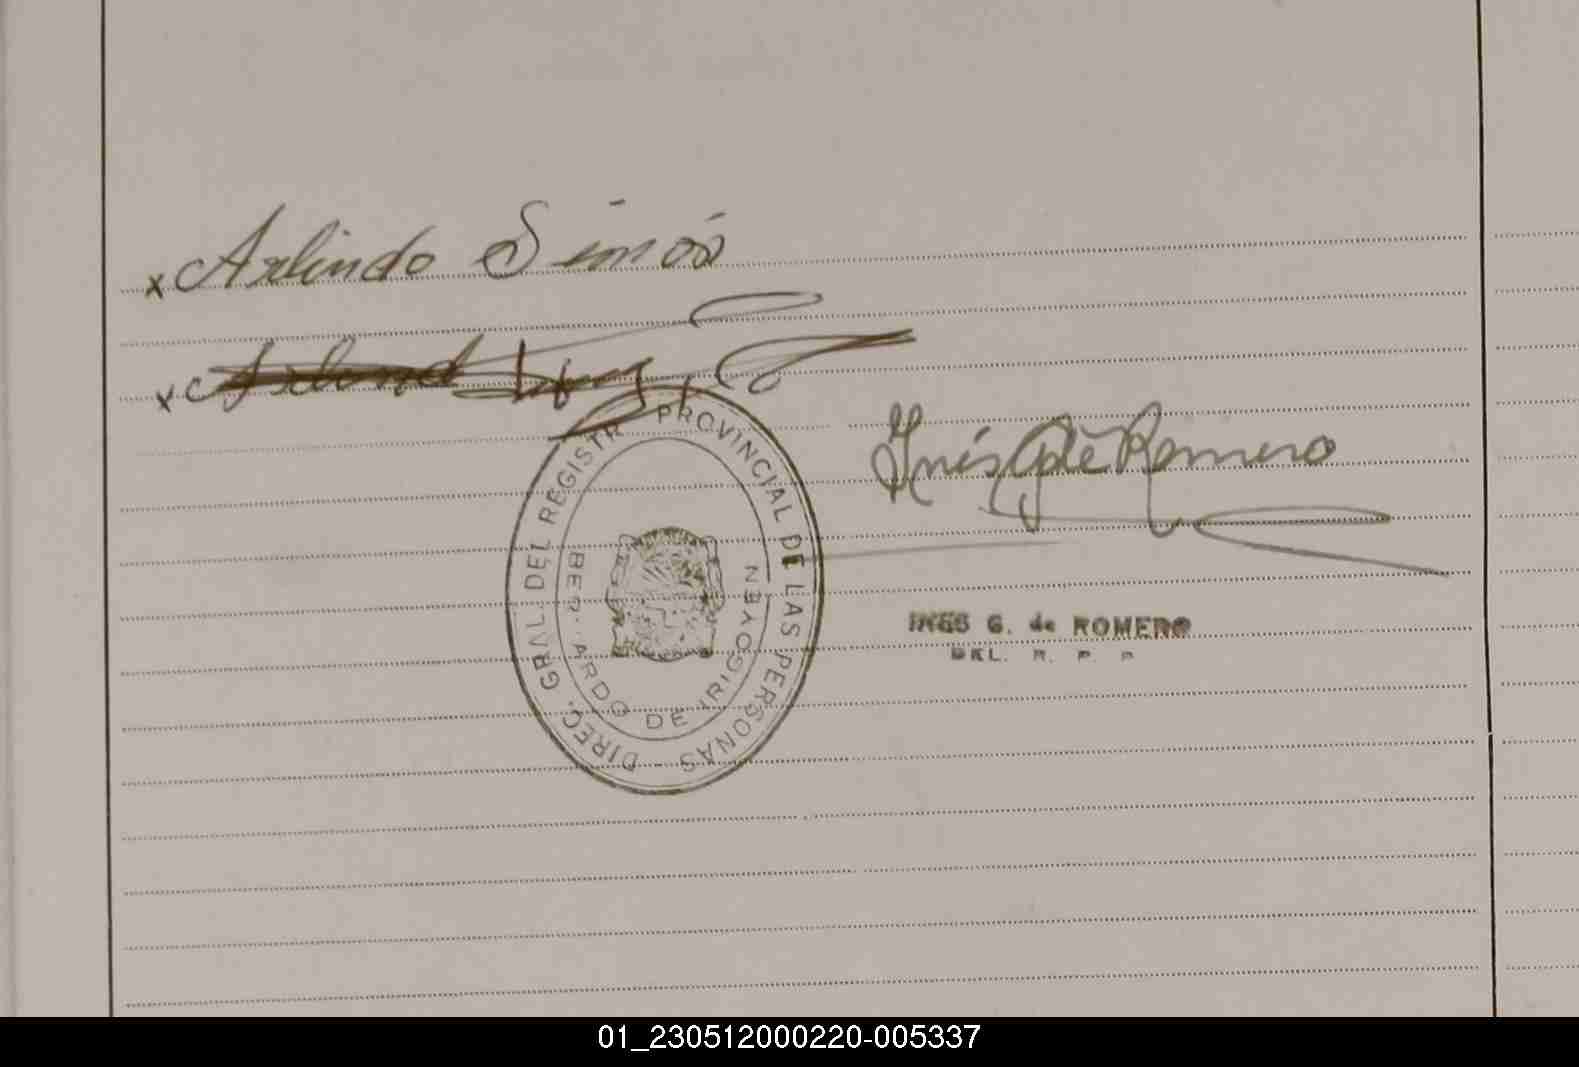 x Arlindo Simós
x Arlind
Inés G. de Romero
DIREC. GRAL DEL REGISTR PROVINCIAL DE LAS PERSONAS -
BER. ARDO DE IRIGOYEN
INES G. de ROMERO
DEL. R. P. P
01_230512000220-005337